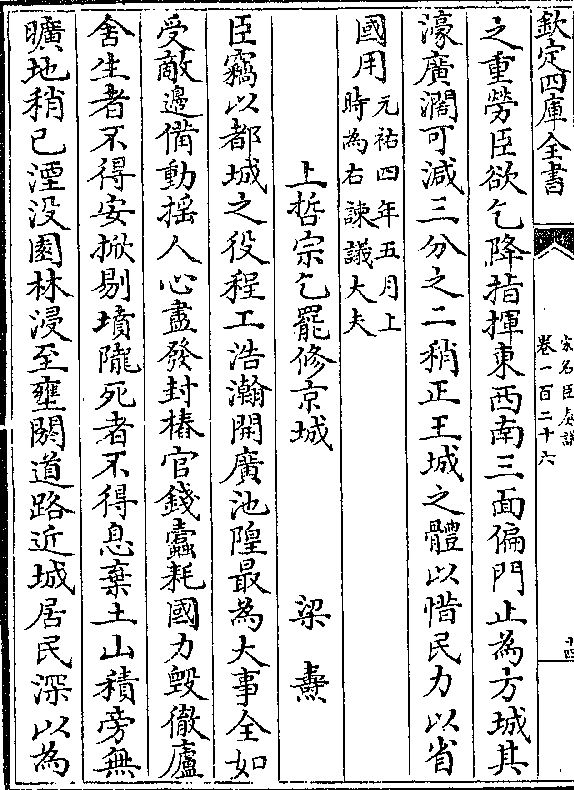 欽定四庫全書
宋名臣奏議
卷一百二十六
十四
之重勞臣欲乞降指揮東西南三面偏門止為方城其
濠廣濶可減三分之二稍正王城之體以惜民力以省
國用元祐四年五月上
時為右諫議大夫
上哲宗乞罷修京城
梁燾
臣竊以都城之役程工浩瀚開廣池隍最為大事全如
受敵邊備動揺人心盡發封樁官錢蠹耗國力毀徹廬
舍生者不得安掀剔墳隴死者不得息棄土山積旁無
曠地稍已湮没園林浸至壅閼道路近城居民深以為